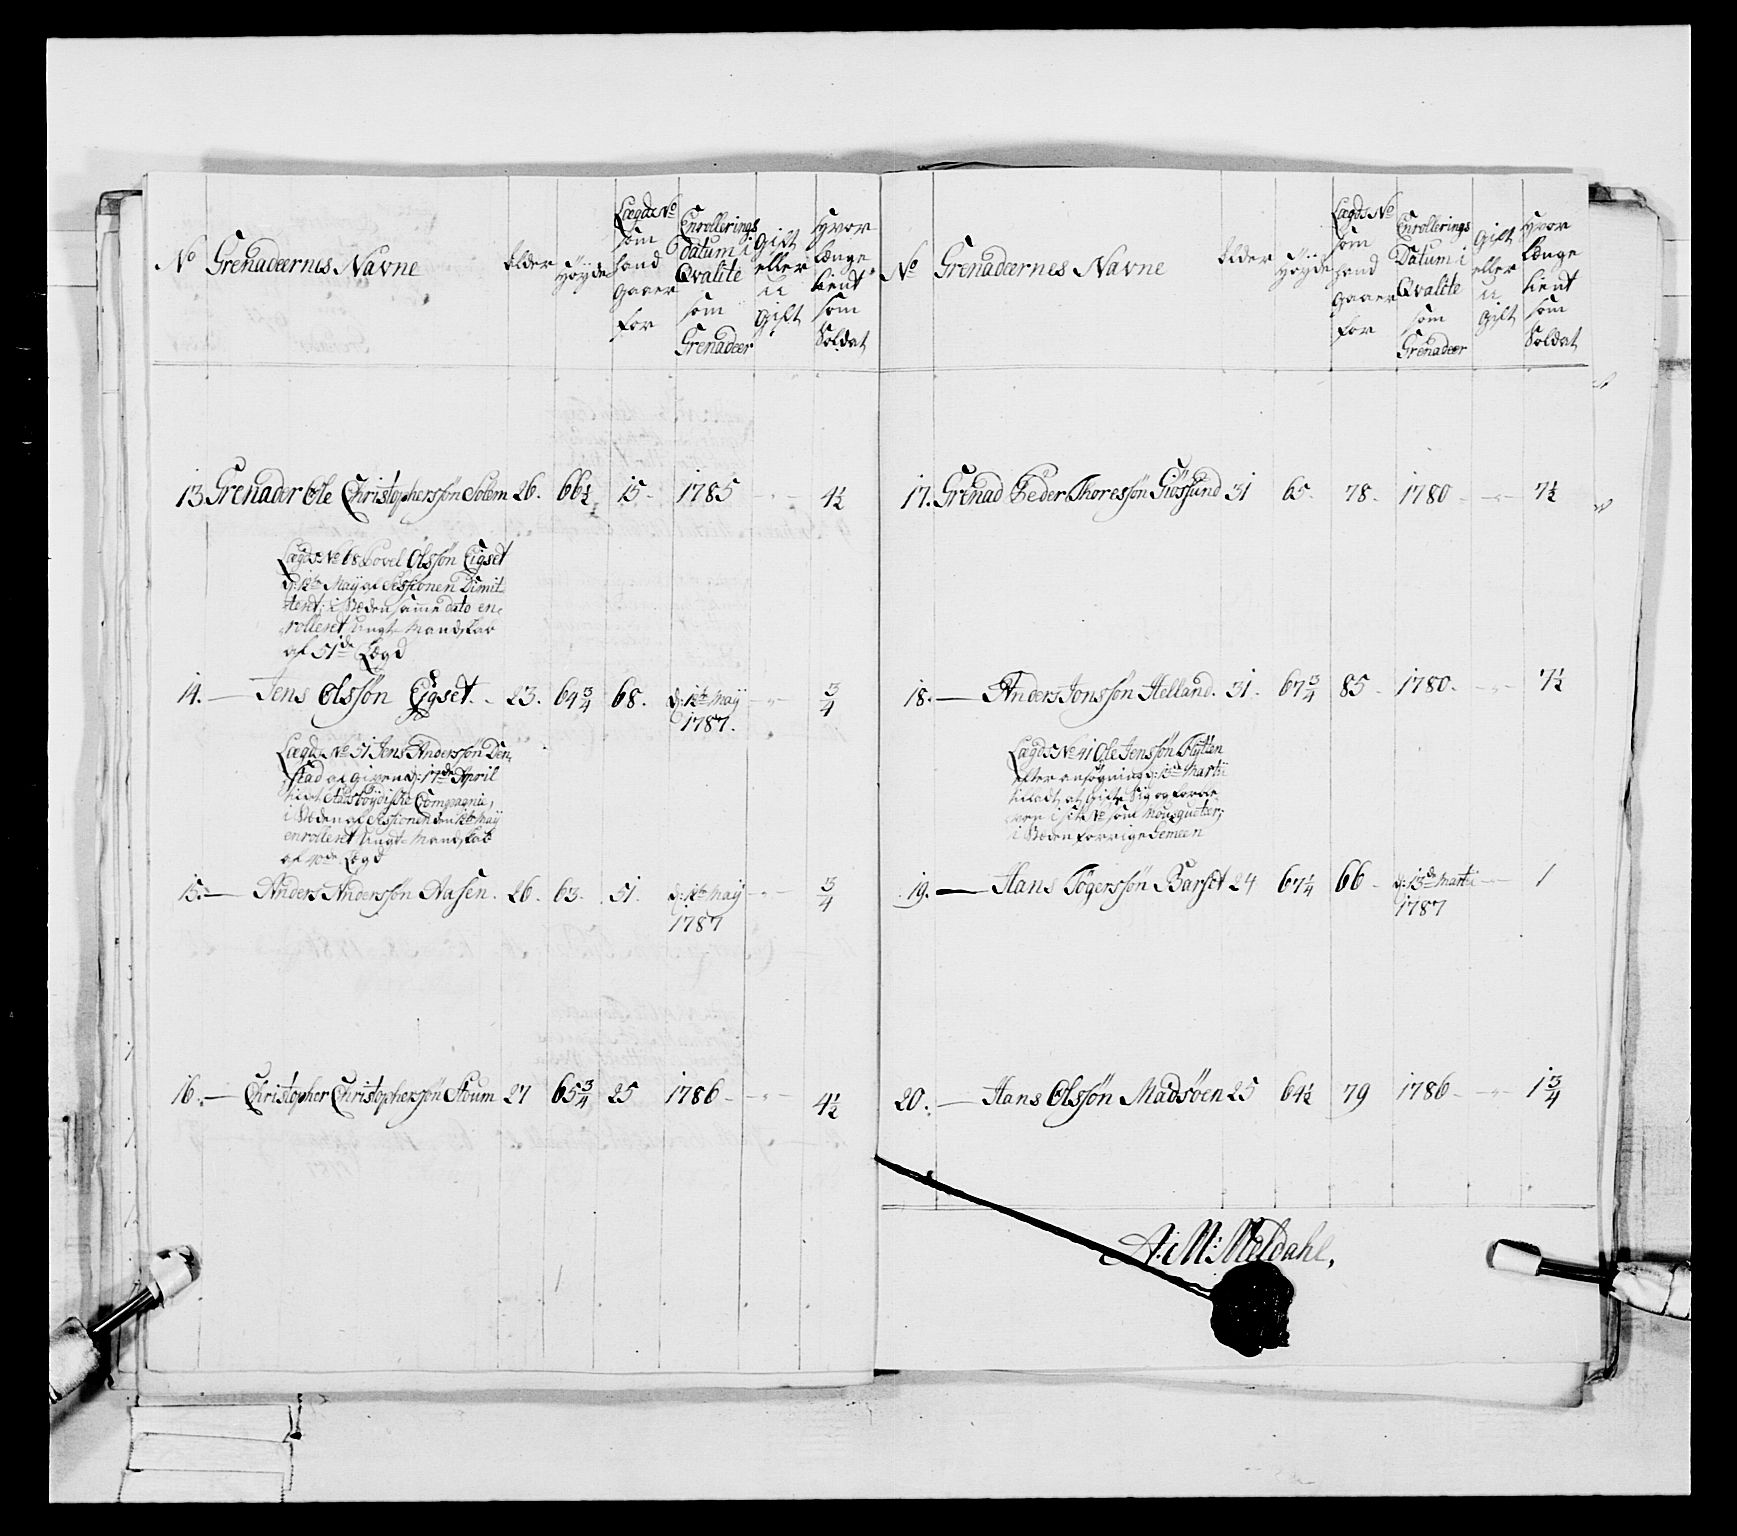 No Grenadeernes Navne Alder Höyde Lægds No som hand gaaer for Enrollerings Datum i Qvalite som Grenadeer Gift eller u Gift Hvor længe tient som Soldat
13. Grenader Ole Christophersön Solem 26. 66½ 15 - 1785 - " - 4½
Lægds No 68 Povel Olssön Eigset
d: 12te Maij af Sessionen Dimit-
teret; i Stæden samme dato en-
rolleret Ungt Mandskab
af 51de Lægd
14. — Jens Olssön Eigset. - 23. 64¾ 68. d: 12te Maij - " - ¾
1787.
Lægds No 51 Jens Anderssön Den-
stad afgiven d: 17de April
til det
Compagnie,
i Stæden af Sessionen den 12te Maij
enrolleret Ungt Mandskab
af 40de Lægd
15. — Anders Anderssön Aasen. 26. 63. 51. d: 12te Maij - " - ¾
1787
16. — Christopher Christophersön Houm 27 65¾ 25 1786 - " - 4½
No Grenadeernes Navne Alder Höyde Lægds No som hand gaaer for Enrollerings Datum i Qvalite som Grenadeer Gift eller u Gift Hvor længe tient som Soldat
17. Grenad Peder Thoressön Giössund 31 65. 78. 1780 - " - 7½
18. — Anders Jonssön Helland. 31. 67¾ 85 - 1780. - " - 7½
Lægds No 41 Ole Jenssön Flytten
efter ansögning d: 13de Martii
tilladt at gifte Sig og forble-
ven i sit No som Mousqueteer;
i Stæden forrige Gemeen
19. — Hans Togerssön Barset 24 67¼ 66 - d: 13de Martii - " - 1
1787
20. — Hans Olssön Madsöen 25 64½ 79 1786 - " - 1¾
A: M: Meldahl,